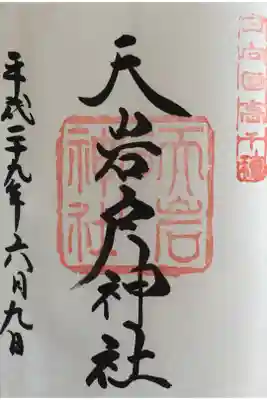 天岩戸神社
天岩
神社
平成二十九年六月九日